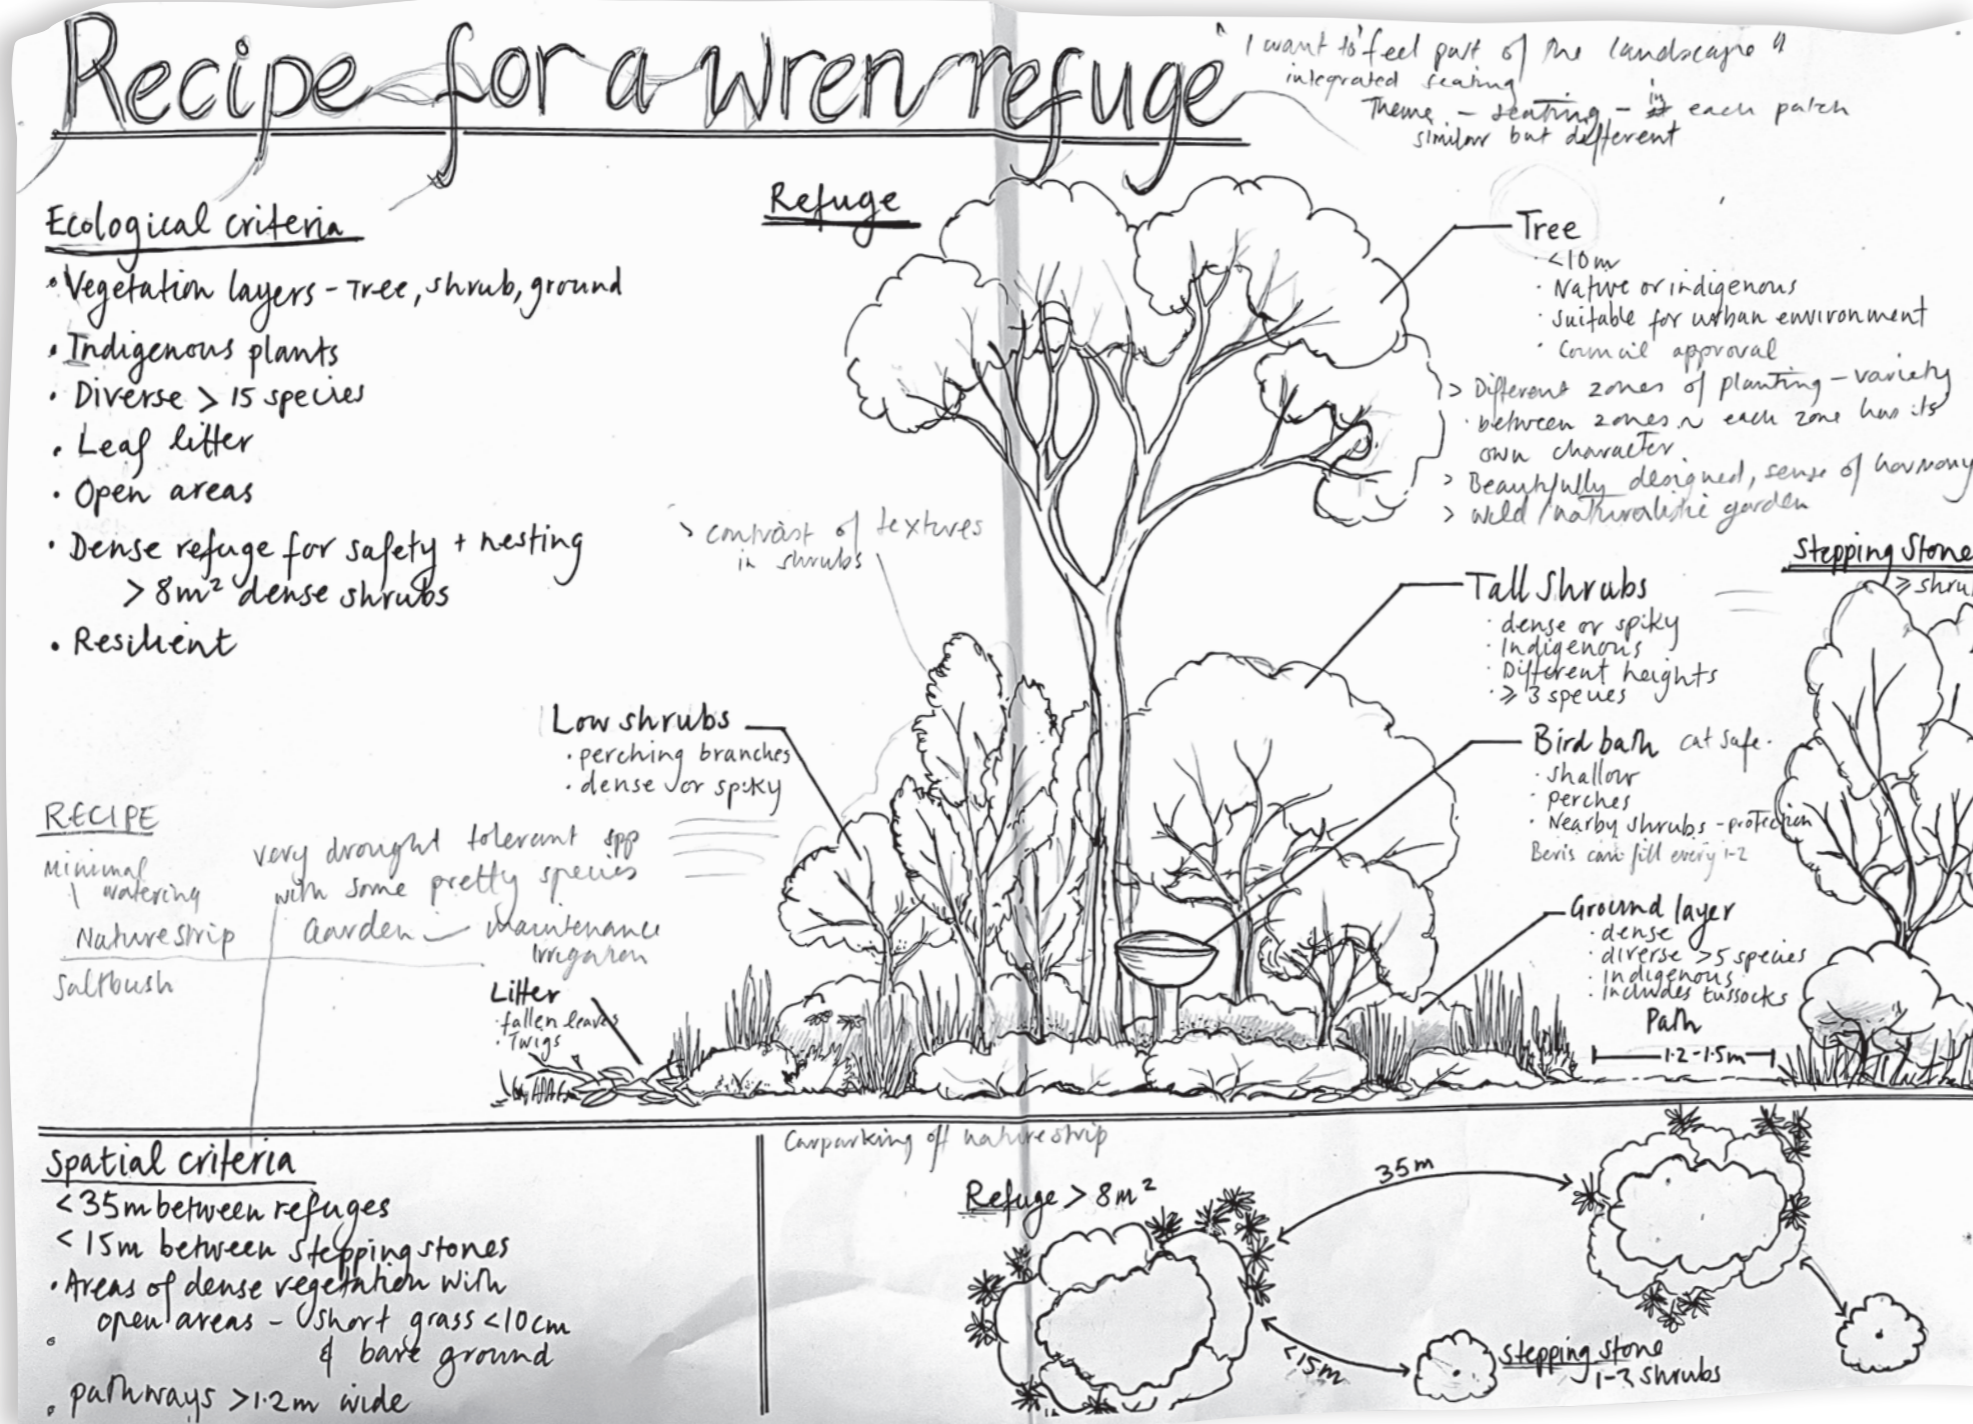 Recipe for a wren refuge
"I want to feel part of the landscape"
integrated seating
Theme - seating - in each patch
similar but different
Ecological criteria
• Vegetation layers - Tree, shrub, ground
• Indigenous plants
• Diverse > 15 species
• Leaf litter
• Open areas
• Dense refuge for safety + nesting
> 8m² dense shrubs
• Resilient
Refuge
Tree
• <10m
• Native or indigenous
• Suitable for urban environment
• Council approval
> Different zones of planting - variety
between zones ~ each zone has its
own character
> Beautifully designed, sense of harmony
> wild / naturalistic garden
> contrast of textures
in shrubs
Stepping Stone
≥ shru
Tall Shrubs
• dense or spiky
• Indigenous
• Different heights
• ≥ 3 species
Low shrubs
• perching branches
• dense or spiky
Bird bath cat safe.
• shallow
• perches
• Nearby shrubs - protection
can fill every 1-2
RECIPE
Minimal
watering
very drought tolerant spp
with some pretty species
Nature strip
Garden
maintenance
Irrigation
Saltbush
Litter
• fallen leaves
• Twigs
Ground layer
• dense
• diverse >5 species
• Indigenous
• Includes tussocks
Path
1.2-1.5m
Spatial criteria
< 35m between refuges
< 15m between stepping stones
• Areas of dense vegetation with
open areas - short grass <10cm
& bare ground
• pathways >1.2m wide
Carparking off nature strip
Refuge > 8m²
35m
<15m
Stepping Stone
1-3 shrubs